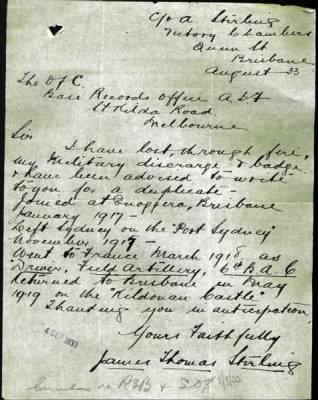 C/o A. Stirling
Victory Chambers
Queen St
Brisbane
August 33
The O/C.
Base Records Office A I F
St Kilda Road
Melbourne
Sir
I have lost through fire,
my Military discharge & badge
& have been advised to write
to you for a duplicate -
Joined at Enoggera, Brisbane
January 1917 -
Left Sydney on the "Port Sydney"
November, 1917 -
Went to France March 1918 as
"Driver, Field Artillery, 6th B. A. C
Returned to Brisbane in May
1919 on the "Kildonan Castle"
Thanking you in anticipation
Yours Faithfully
James Thomas Stirling
4 SEP 1933